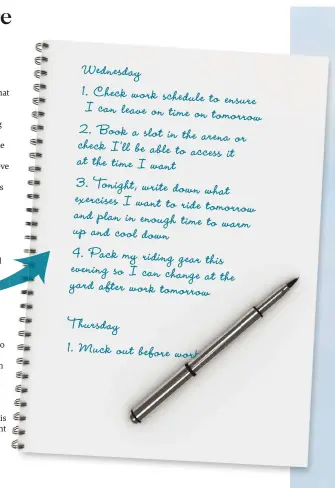 e
hat
g
e
ve
s
Wednesday
1. Check work schedule to ensure
I can leave on time on tomorrow
2. Book a slot in the arena or
check I'll be able to access it
at the time I want
3. Tonight, write down what
exercises I want to ride tomorrow
and plan in enough time to warm
up and cool down
4. Pack my riding gear this
evening so I can change at the
yard after work tomorrow
Thursday
1. Muck out before work
l
o
n
is
nt